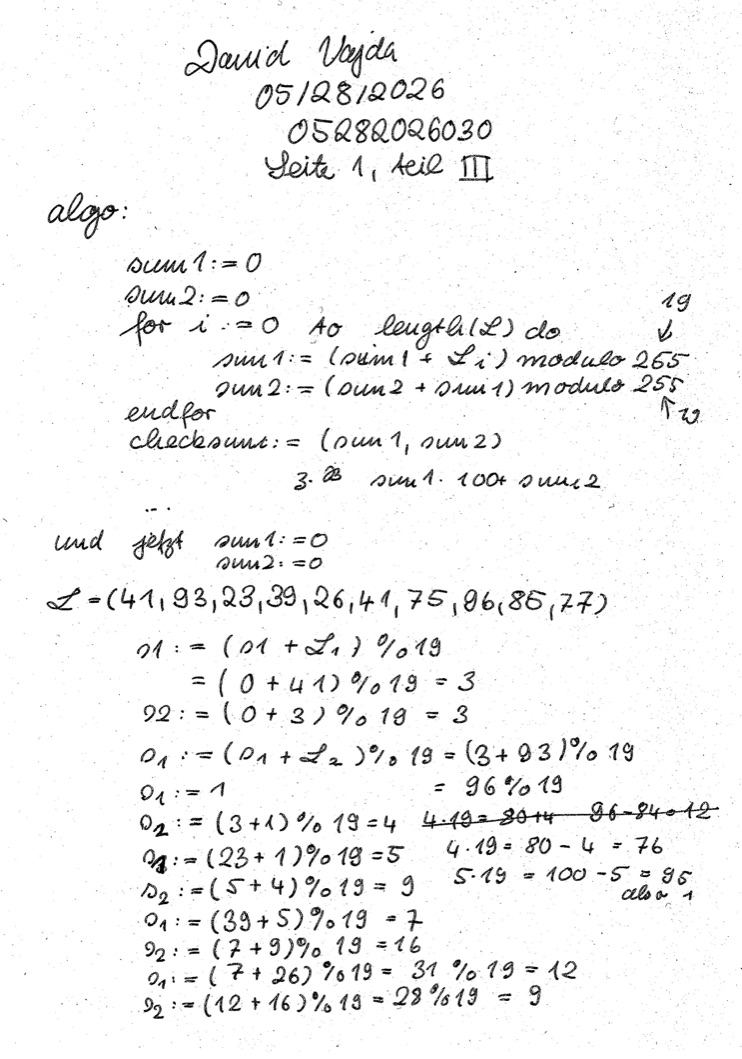 David Vajda
05/28/2026
05282026030
Seite 1, Teil III
algo:
sum1:=0
sum2:=0
19
for i:=0 to length(L) do
↓
sum1:=(sum1 + Li) modulo 255
sum2:=(sum2 + sum1) modulo 255
endfor
↑19
checksum:=(sum1, sum2)
3. sum1·100+sum2
...
und jetzt sum1:=0
sum2:=0
L=(41,93,23,39,26,41,75,96,85,77)
s1:=(s1+L1)%19
=(0+41)%19=3
s2:=(0+3)%19=3
s1:=(s1+L2)%19=(3+93)%19
s1:=1 = 96%19
s2:=(3+1)%19=4 4·19=80+4 96-84=12
s1:=(23+1)%19=5 4·19=80-4=76
s2:=(5+4)%19=9 5·19=100-5=95
also 1
s1:=(39+5)%19=7
s2:=(7+9)%19=16
s1:=(7+26)%19=31%19=12
s2:=(12+16)%19=28%19=9